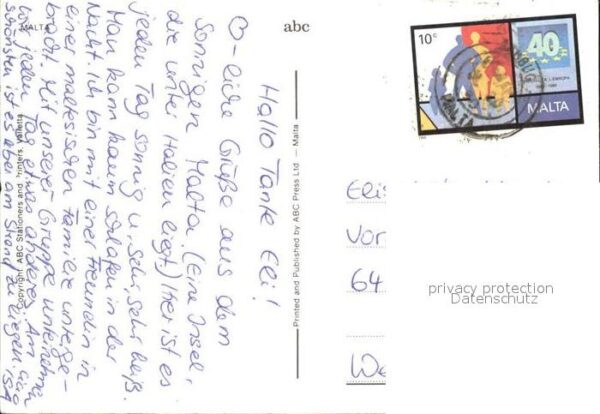 MALTA
Copyright ABC Stationers and Printers, Valletta
abc
Printed and Published by ABC Press Ltd — Malta
Hallo Tante Eli!
liebe Grüße aus dem
sonnigen Malta. (Eine Insel,
die unter Italien liegt) Hier ist es
jeden Tag sonnig u. sehr, sehr heiß.
Man kann kaum schlafen in der
Nacht. Ich bin mit einer Freundin in
einer maltesischen Familie unterge-
bracht. Mit unserer Gruppe unternehmen
wir jeden Tag etwas anderes. Am
schönsten ist es aber am Strand zu liegen
10c
40
MALTA
Elis
Vor
64
We
privacy protection
Datenschutz